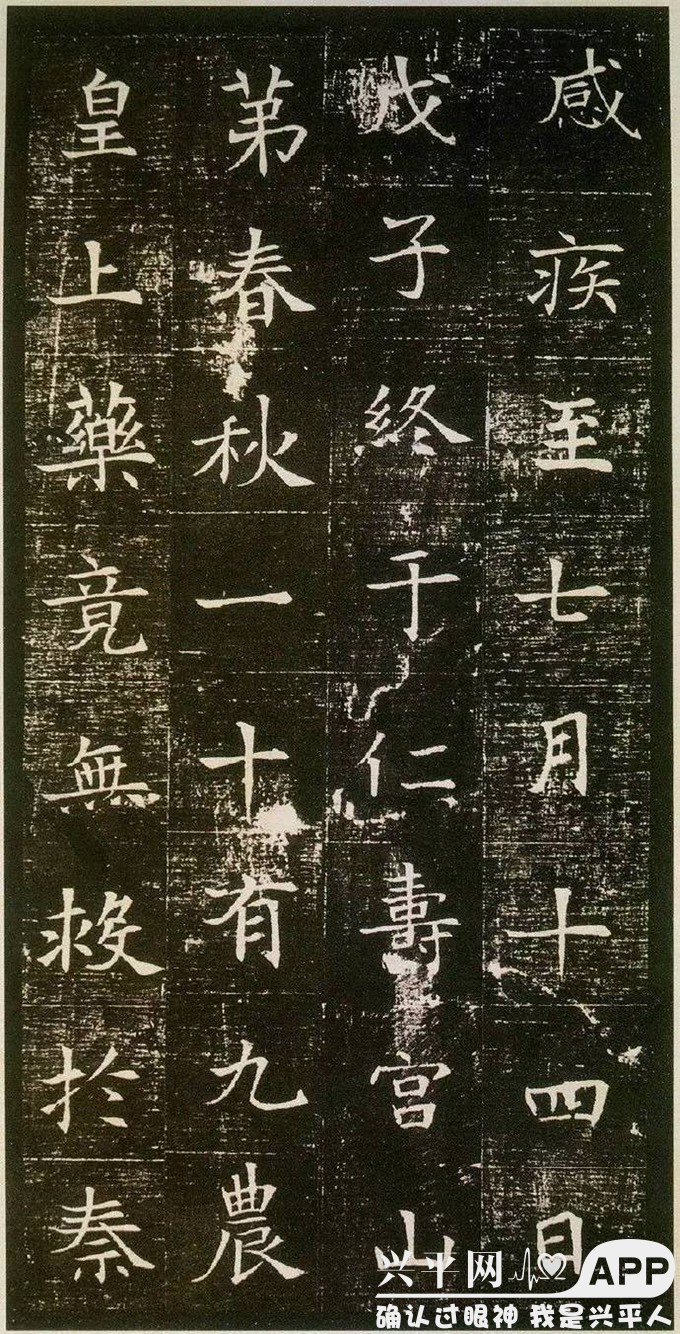 感疾至七月十四日
戊子終于仁壽宮山
苐春秋一十有九農
皇上藥竟無救扵秦
兴平网 APP
确认过眼神 我是兴平人